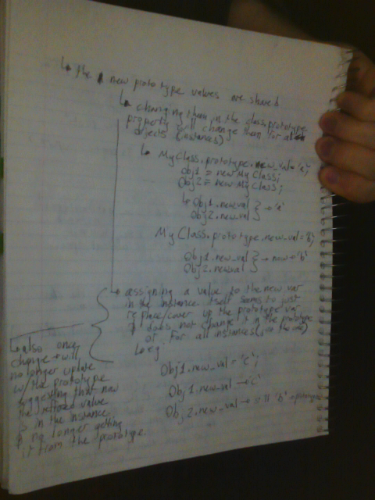 ↳ the new prototype values are shared
↳ changing them in the class.prototype
property will change them for all
objects (instances)
↳ MyClass.prototype.new_val = 'a';
Obj1 = new MyClass;
Obj2 = new MyClass;
↳ Obj1.newval } → 'a'
Obj2.newval
MyClass.prototype.new_val = 'B';
Obj1.new_val } → now = 'b'
Obj2.newval
↳ assigning a value to the new var
in the instance itself seems to just
replace/cover up the prototype var
& does not change it in the prototype
or for all instances (in the
↳ eg
Obj1.new_val = "c";
Obj1.new_val → c
Obj2.new_val → "b"
↳ also once
change it will
no longer update
w/ the prototype
suggesting that now
the retrieved value
is in the instance
& no longer getting
it from the prototype